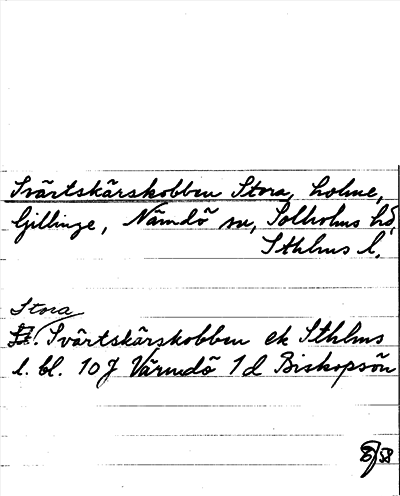 Svärtskärskobben Stora, holme,
Gillinge, Nämdö sn, Sotholms hd,
Sthlms l.
Stora
St. Svärtskärskobben ek Sthlms
l. bl. 10 J Värmdö 1 d Biskopsön
58